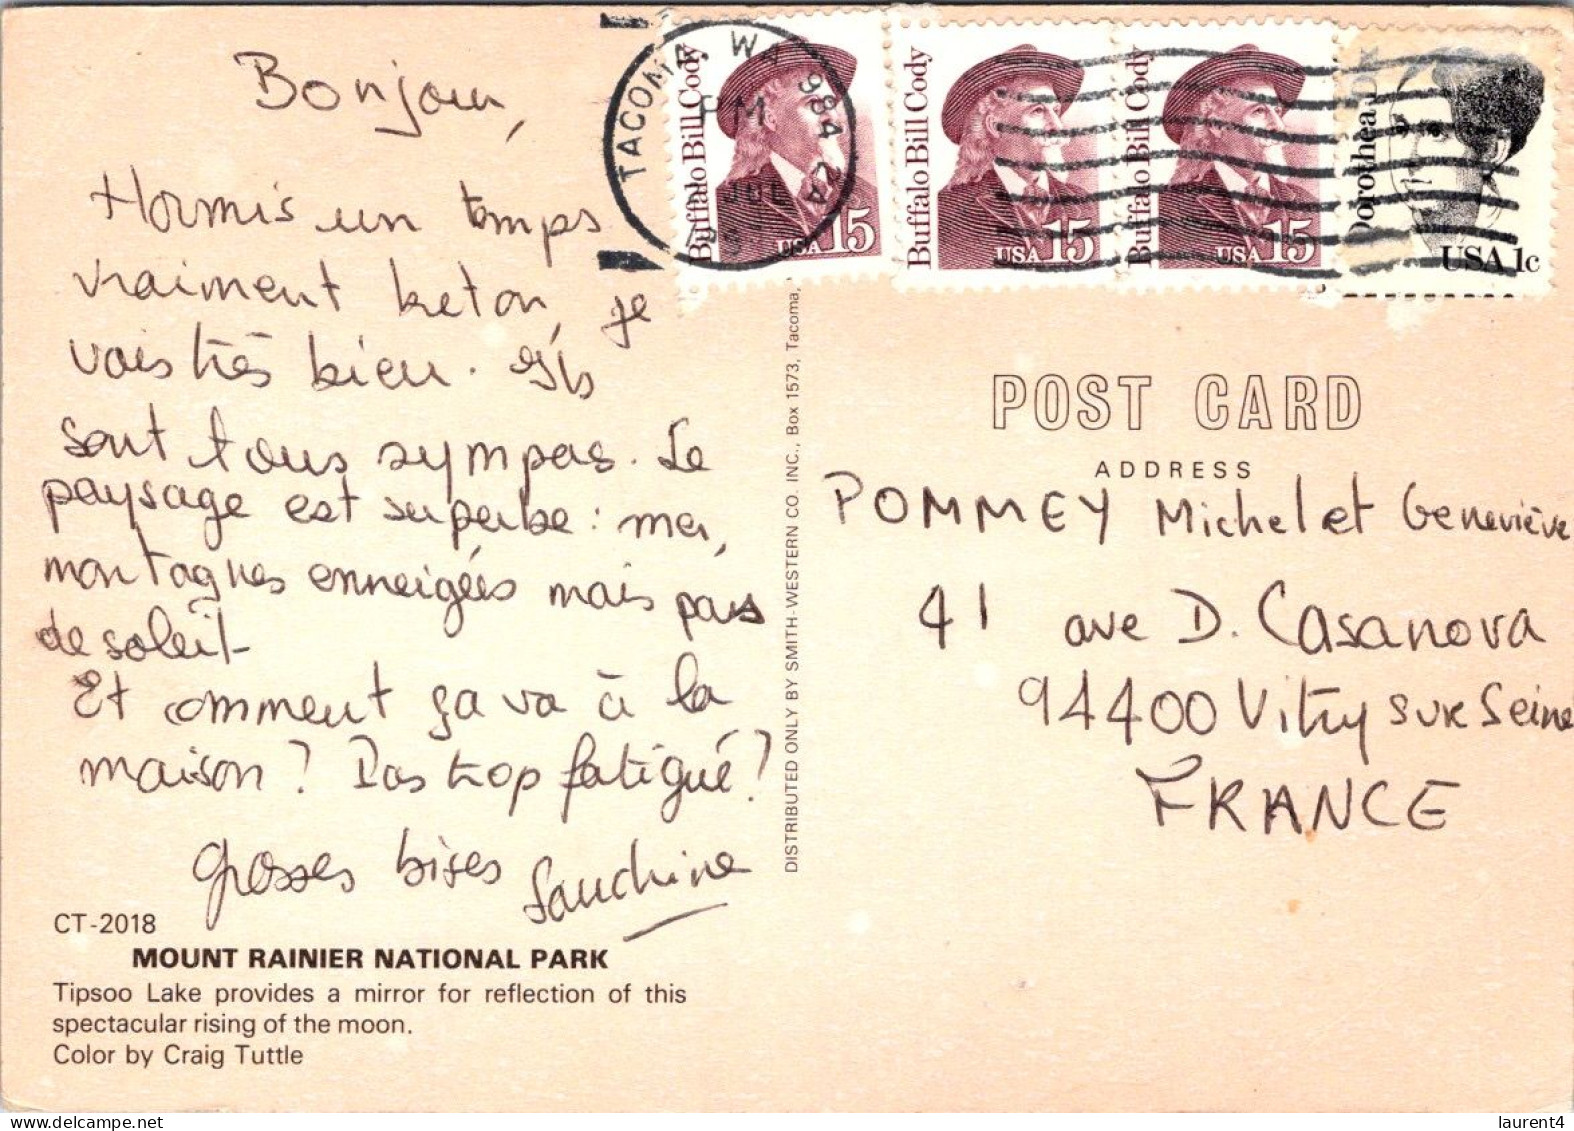 Bonjour,
Hormis un temps
vraiment breton, je
vais très bien. Ils
sont tous sympas. Le
paysage est superbe : mer,
montagnes enneigées mais pas
de soleil.
Et comment ça va à la
maison ? Pas trop fatigué ?
Grosses bises
CT-2018
MOUNT RAINIER NATIONAL PARK
Tipsoo Lake provides a mirror for reflection of this
spectacular rising of the moon.
Color by Craig Tuttle
DISTRIBUTED ONLY BY SMITH-WESTERN CO. INC., Box 1573, Tacoma,
TACOMA, WA 984
PM
JUL
Buffalo Bill Cody
USA 15
Buffalo Bill Cody
USA 15
Buffalo Bill Cody
USA 15
Dorothea Dix
USA 1c
POST CARD
ADDRESS
POMMEY Michel et Geneviève
41 ave D. Casanova
94400 Vitry sur Seine
FRANCE
laurent4